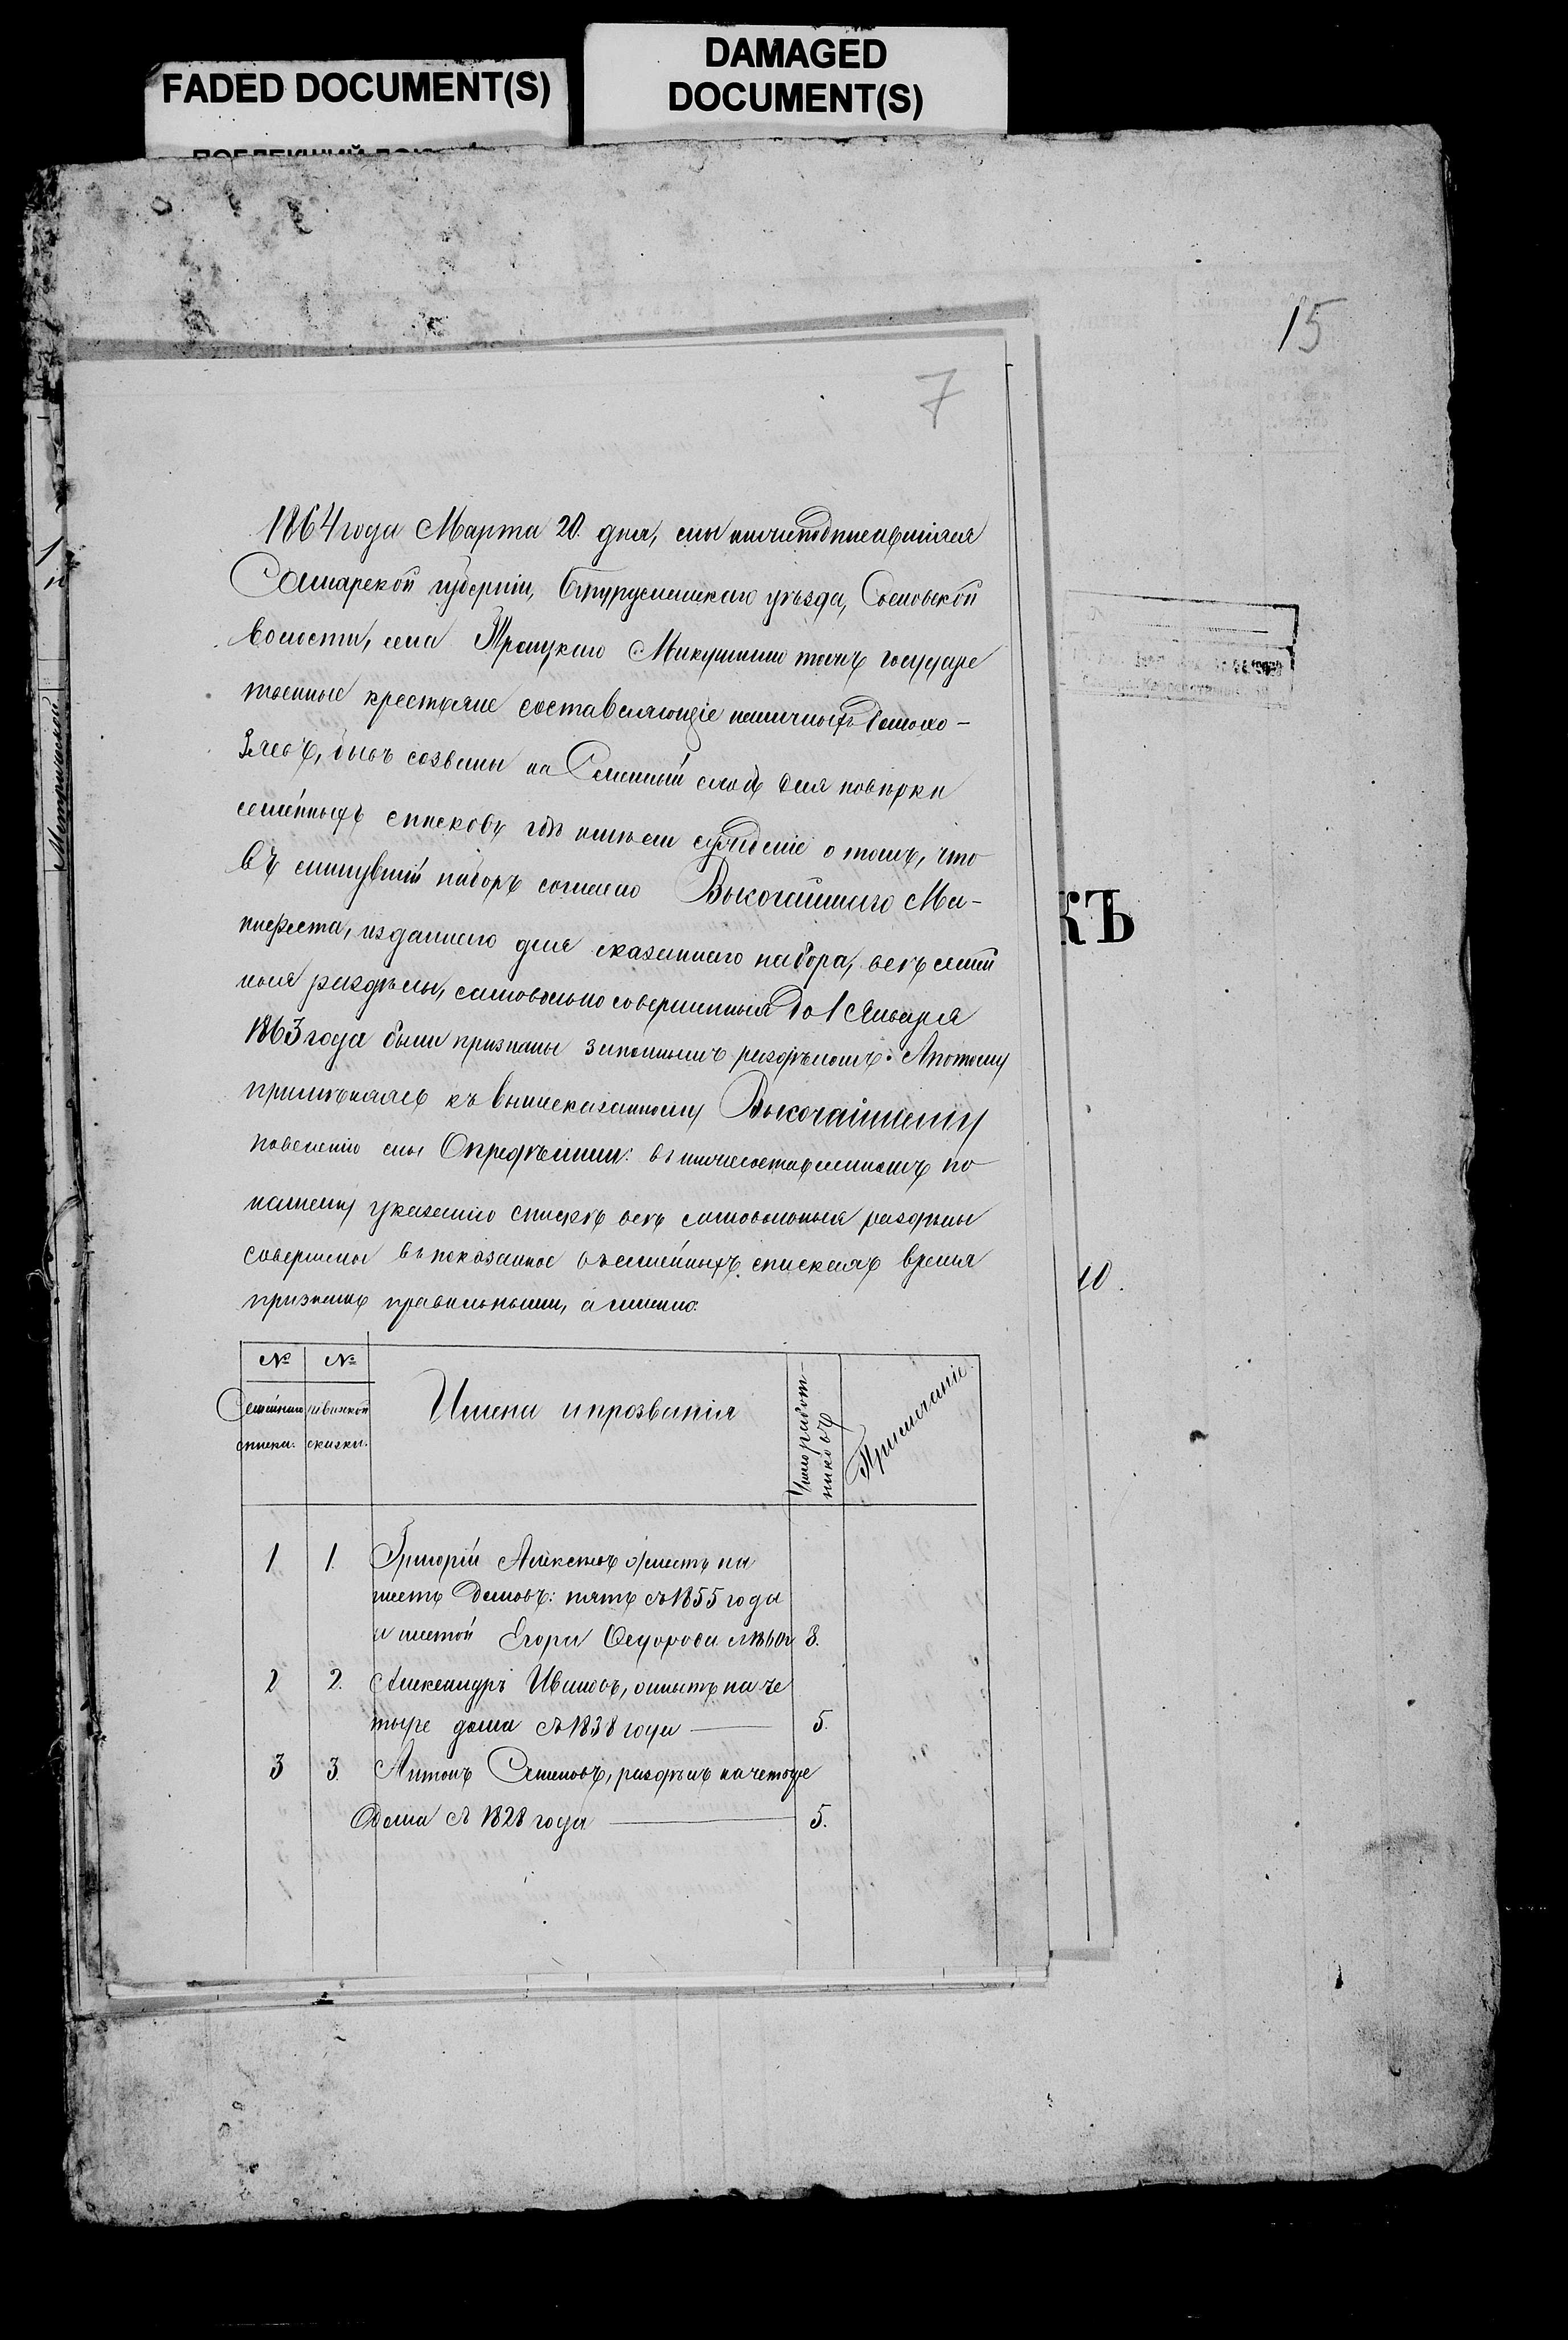 FADED DOCUMENT(S)
DAMAGED
DOCUMENT(S)
15
7
1864 года Марта 20. дня, мы нижеподписавшіяся
Самарской губерніи, Бугурусланскаго уѣзда, Сосновской
волости, села Троицкаго Микушкино тожъ государс
твенные крестьяне составляющіе наличныхъ домохо-
зяевъ, бывъ созваны на Сельный сходъ для повѣрки
семейныхъ списковъ гдѣ имѣли сужденіе о томъ, что
въ минувшій наборъ согласно Высочайшаго Ма-
нифеста, изданнаго для сказаннаго набора, всѣ семей
ныя раздѣлы, самовольно совершенныя до 1 Января
1863 года были признаны законнымъ раздѣломъ. Апотому
примѣняясь къ вышесказанному Высочайшему
повелению мы Опредѣлили: въ нижесоставленномъ по
нашему указанію спискѣ всѣ самовольныя раздѣлы
совершены въ показанное въ семейныхъ спискахъ время
признать правильными, а именно:
№ №
Семейнаго ревизкой
списка. сказки.
Имена и прозванія
Число работ-
никовъ
Примѣчаніе.
1 1. Григорій Алексѣевъ
шесть домовъ: пять съ 1855 года
и шестой Егора Федорова 8.
2 2. Александръ Ивановъ, на че
тыре дома съ 1838 года 5.
3 3. Антонъ Семеновъ, раздѣлъ на четыре
дома съ 1828 года 5.
КЪ
10.